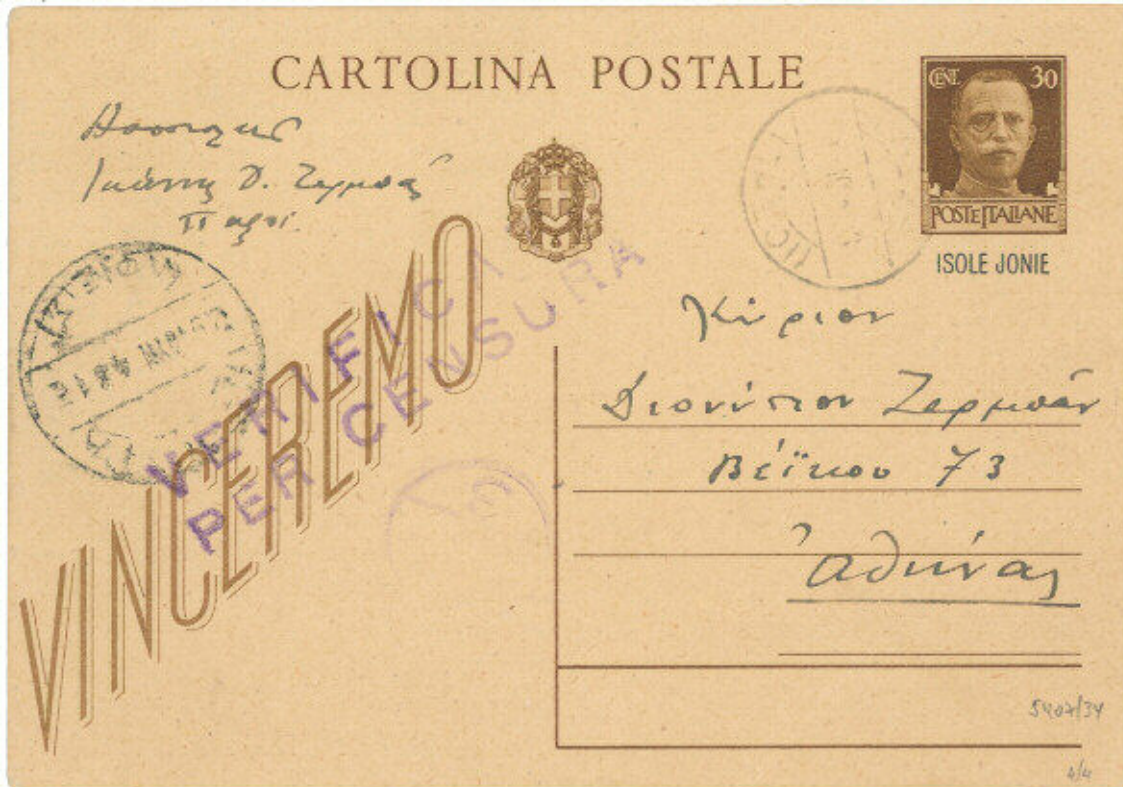 CARTOLINA POSTALE
CENT. 30
POSTE ITALIANE
ISOLE JONIE
Ἰωάννης Δ. Ζερμπᾶς
VINCEREMO
VERIFICI
PER CENSURA
Κύριον
Διονύσιον Ζερμπᾶν
Βέϊκου 73
Ἀθήνας
5407/34
4/4